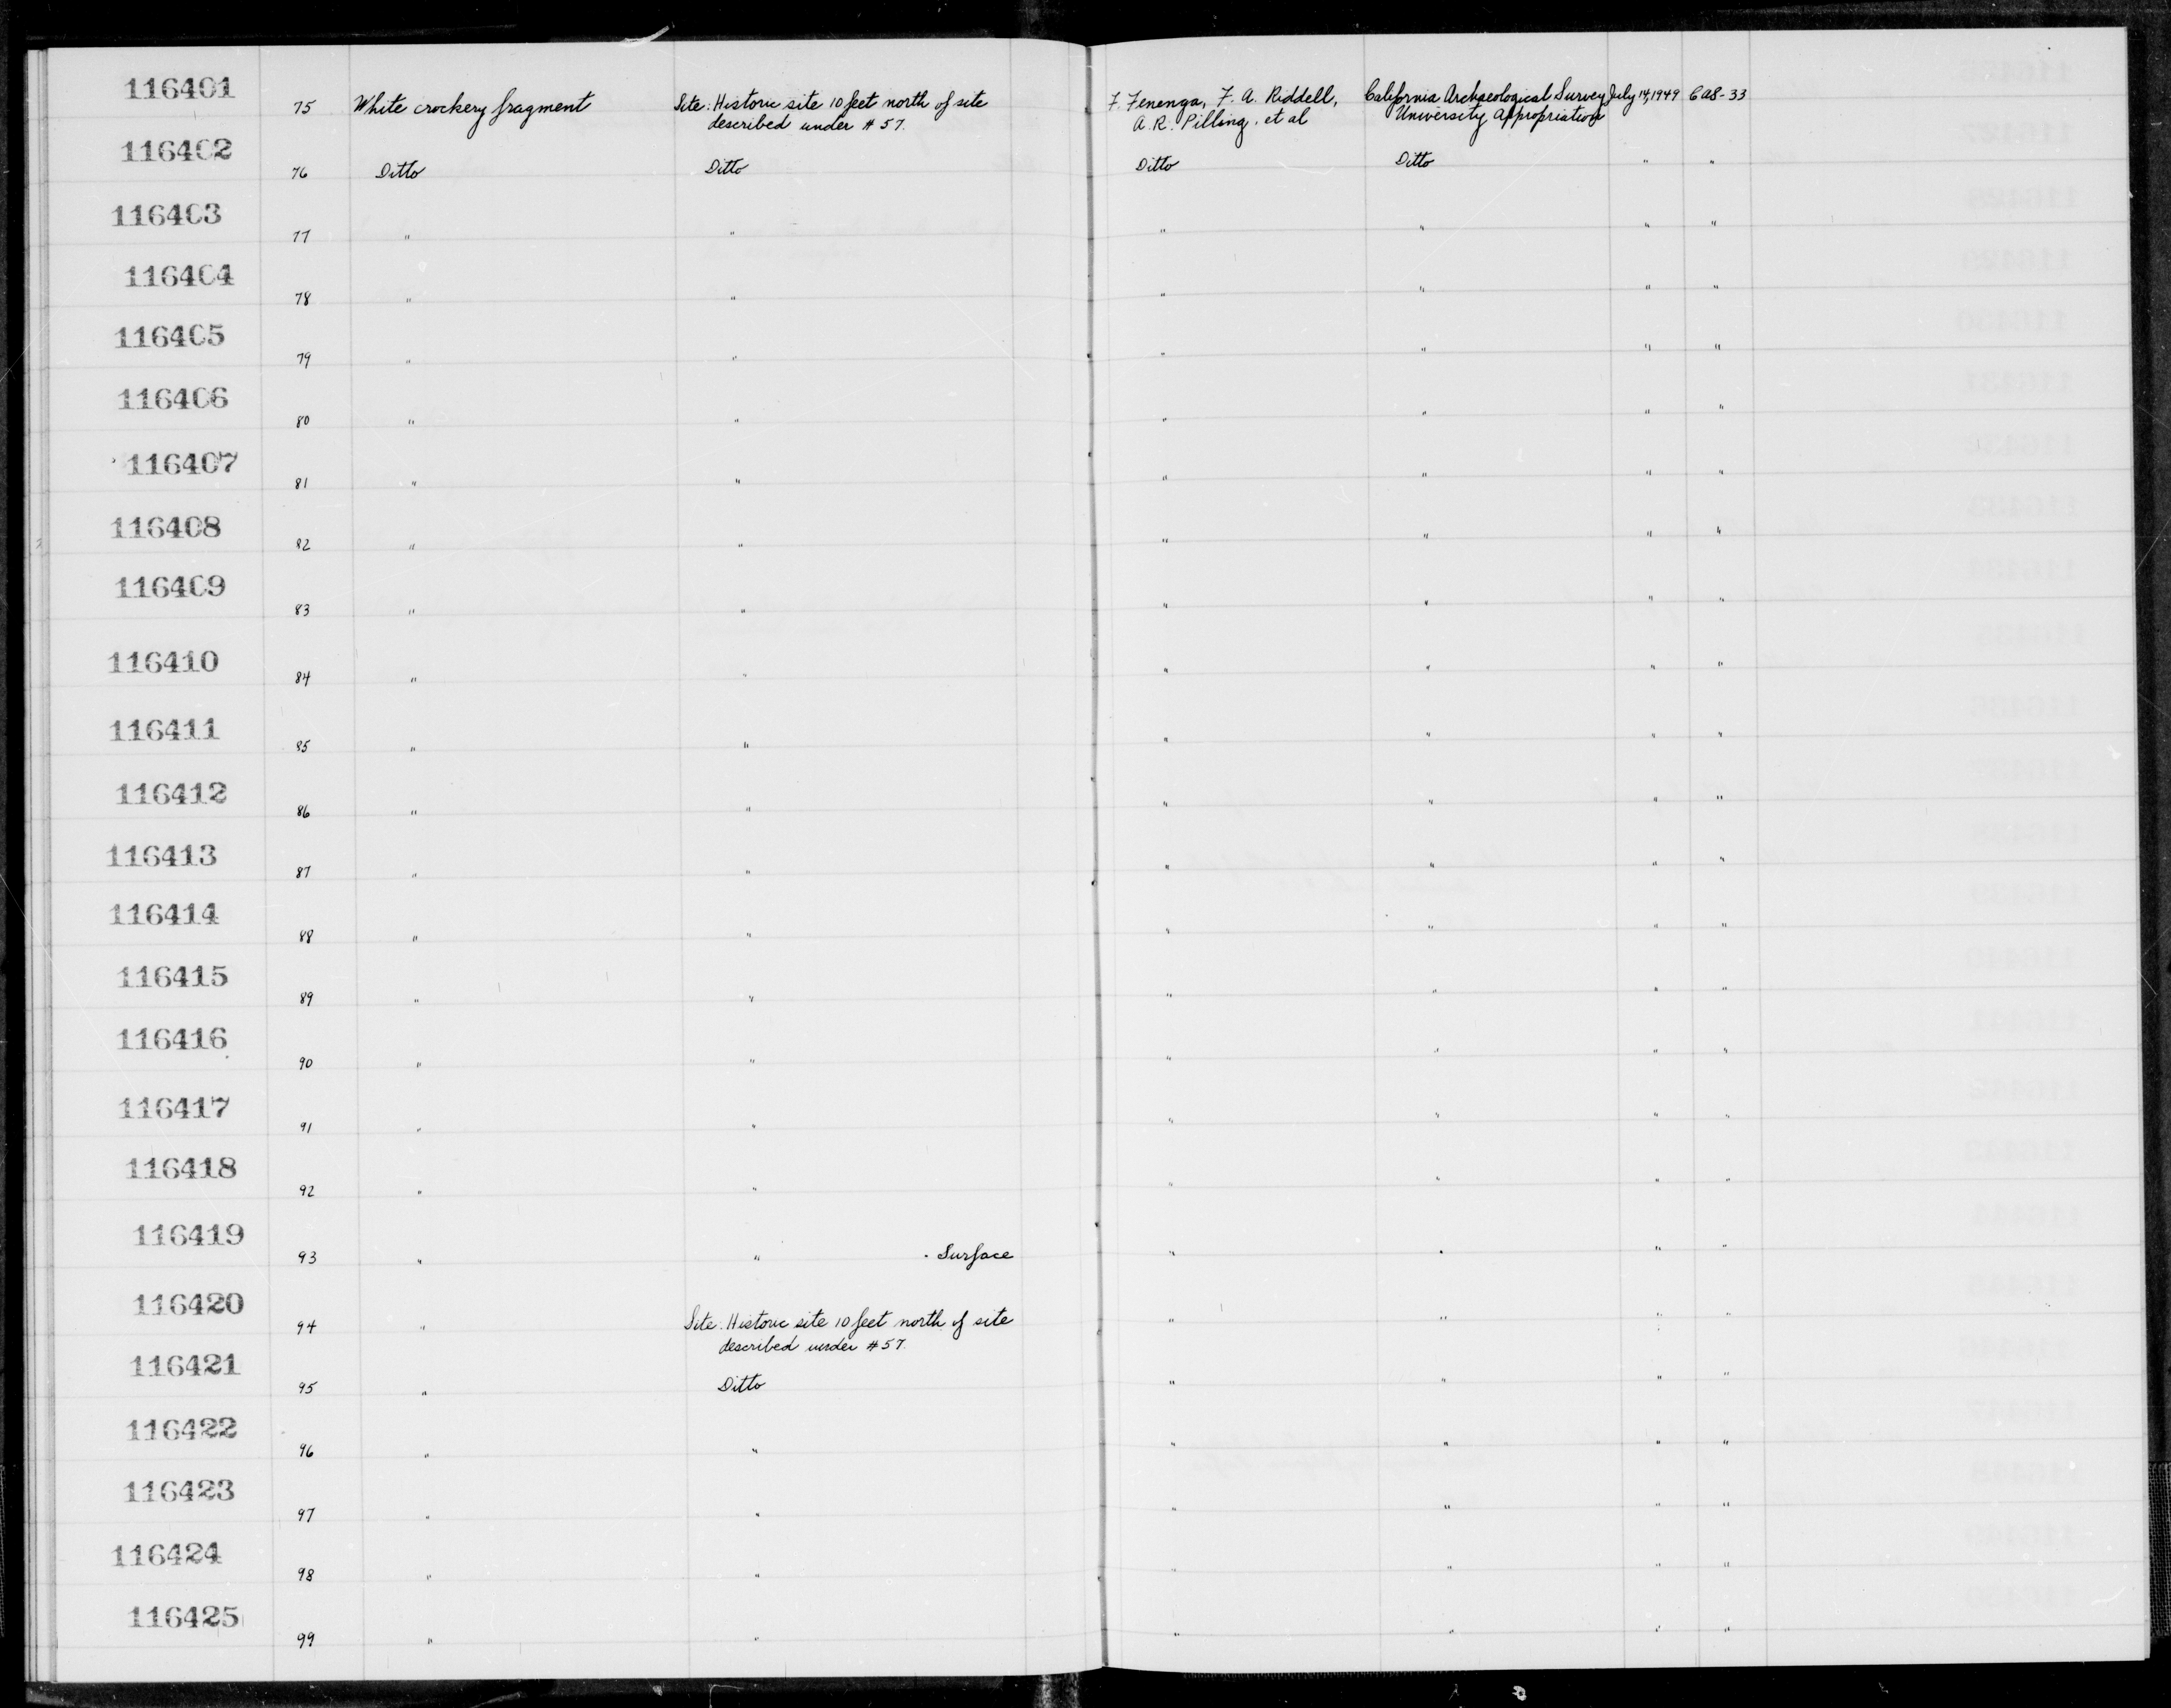 116401 75 White crockery fragment Site: Historic site 10 feet north of site F. Fenenga, F. A. Riddell, California Archaeological Survey July 14, 1949 CAS-33
described under #57. A. R. Pilling, et al University Appropriation
116402 76 Ditto Ditto Ditto Ditto " "
116403 77 " " " " " "
116404 78 " " " " " "
116405 79 " " " " " "
116406 80 " " " " " "
116407 81 " " " " " "
116408 82 " " " " " "
116409 83 " " " " " "
116410 84 " " " " " "
116411 85 " " " " " "
116412 86 " " " " " "
116413 87 " " " " " "
116414 88 " " " " " "
116415 89 " " " " " "
116416 90 " " " " " "
116417 91 " " " " " "
116418 92 " " " " " "
116419 93 " " - Surface " " " "
116420 94 " Site: Historic site 10 feet north of site " " " "
described under #57.
116421 95 " Ditto " " " "
116422 96 " " " " " "
116423 97 " " " " " "
116424 98 " " " " " "
116425 99 " " " " " "